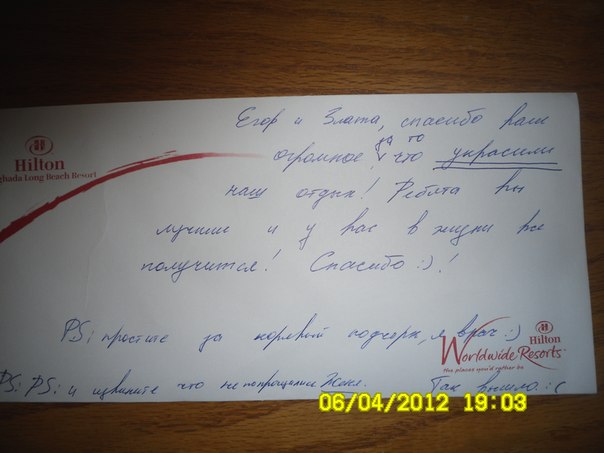 Егор и Злата, спасибо вам
огромное за то что украсили
наш отдых! Ребята вы
лучшие и у вас в жизни все
получится! Спасибо :)!
PS: простите за корявый подчерк, я врач :)
PS: PS: и извините что не попрощались Женя. Так вышло :(
Hilton
ghada Long Beach Resort
Hilton
Worldwide Resorts
the places you'd rather be
06/04/2012 19:03